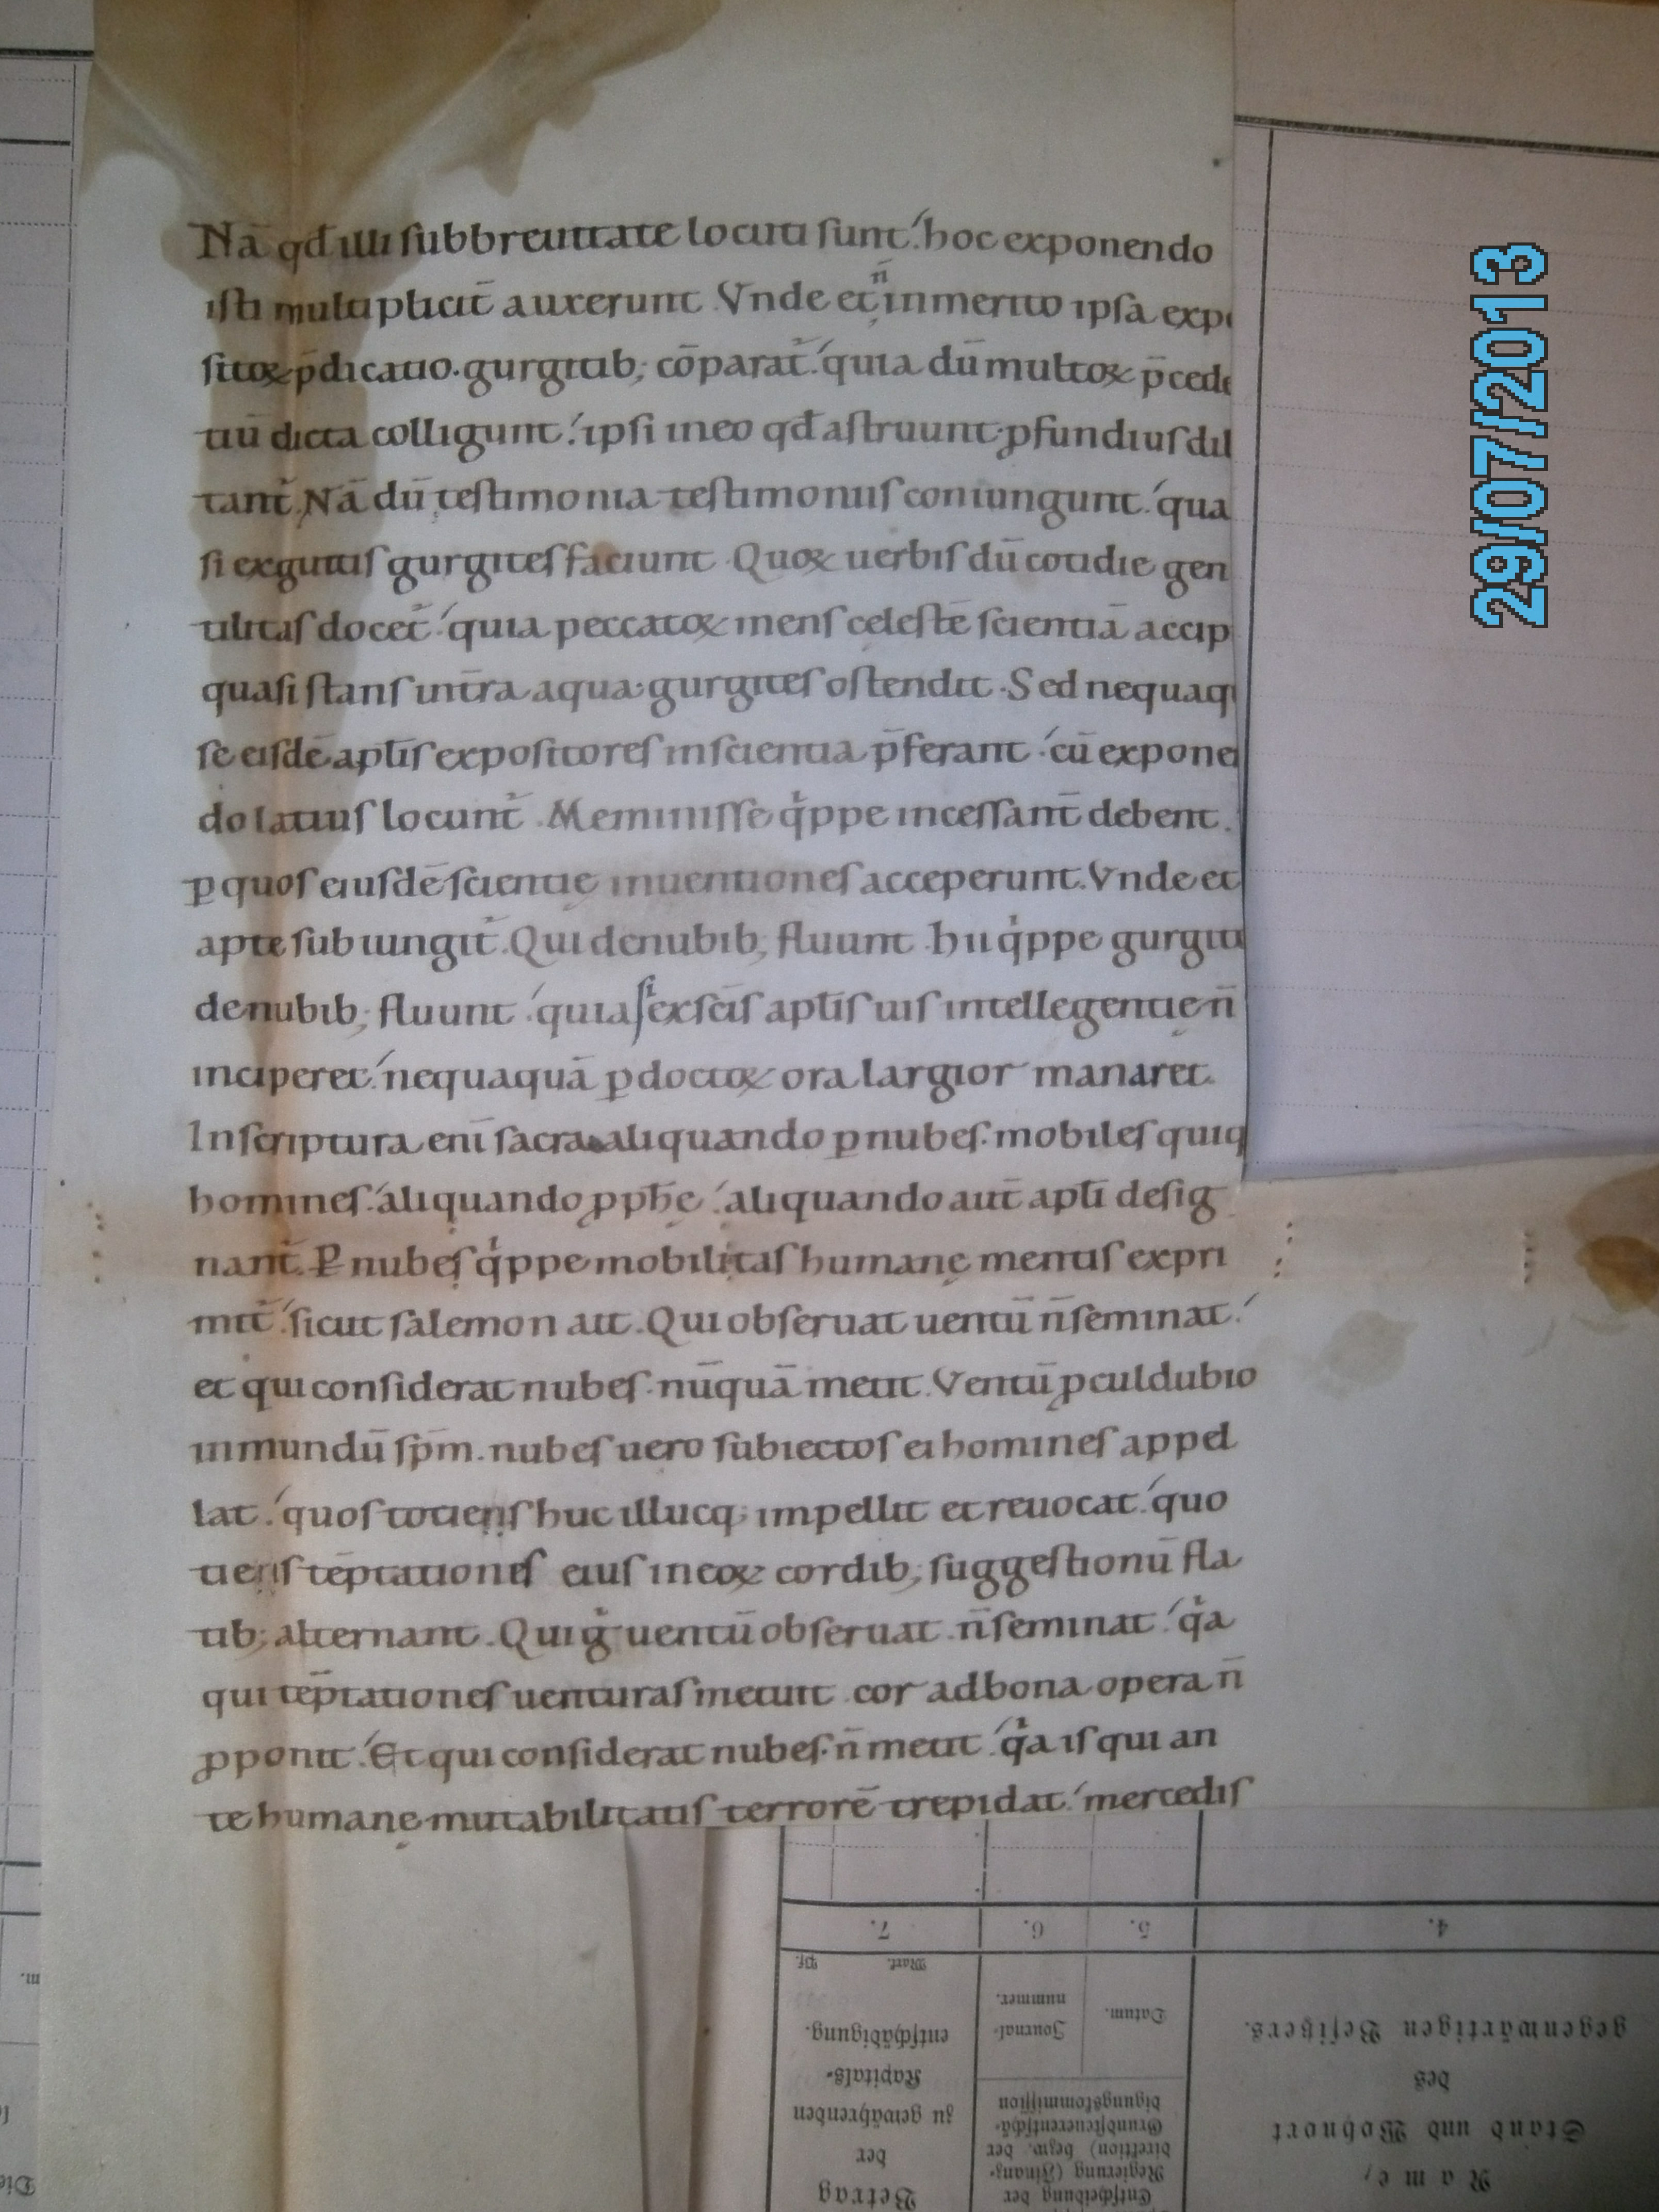 Nā qđ illi subbreuitate locuti sunt. hoc exponendo
isti multiplicit̄ auxerunt. Vnde et n̄ inmerito ipsa expo
sitoꝝ p̄dicatio. gurgitib; cōparat᷑. quia dū multoꝝ p̄cede
tiū dicta colligunt. ipsi ineo qđ astruunt ꝓfundius dil
tant᷑. Nā dū testimonia testimoniis coniungunt. qua
si exguttis gurgites faciunt. Quoꝝ uerbis dū cotidie gen
tilitas docet᷑. quia peccatoꝝ mens celestē scientiā accip
quasi stans int̄ra aqua gurgites ostendit. Sed nequaq
se eisdē apl̄is expositores inscientia p̄ferant. cū expone
do latius locunt᷑. Meminisse qͥppe incessant̄ debent.
ꝑ quos eiusdē scientię inuentiones acceperunt. Vnde et
apte subiungit᷑. Qui denubib; fluunt. hii qͥppe gurgiti
denubib; fluunt. quia si exsc̄is apl̄is uis intellegentię n̄
inciperet. nequaquā ꝑ doctoꝝ ora largior manaret.
Inscriptura enī sacra aliquando ꝑ nubes. mobiles quiq
homines. aliquando ꝓph̄ę. aliquando aut̄ apl̄i desig
nant᷑. Ꝑ nubes qͥppe mobilitas humanę mentis expri
mit᷑. sicut salemon ait. Qui obseruat uentū n̄ seminat.
et qui considerat nubes. nūquā metit. Ventū ꝓculdubio
inmundū sp̄m. nubes uero subiectos ei homines appel
lat. quos totiens huc illucq; impellit et reuocat. quo
tiens tēptationes eius ineoꝝ cordib; suggestionū fla
tib; alternant. Qui gͥ uentū obseruat. n̄ seminat. qͥa
qui tēptationes uenturas metuit. cor adbona opera n̄
ꝓponit. Et qui considerat nubes. n̄ metit. qͥa is qui an
te humanę mutabilitatis terrorē trepidat. mercedis
29/07/2013
4.
5.
6.
7.
Name,
Stand und Wohnort
des
gegenwärtigen Besitzers.
Entscheidung der
Regierung (Finanz-
direktion) bezw. der
Grundsteuerentschä-
digungskommission
Datum.
Journal-
nummer.
Betrag
der
zu gewährenden
Kapitals-
entschädigung.
Mark. Pf.